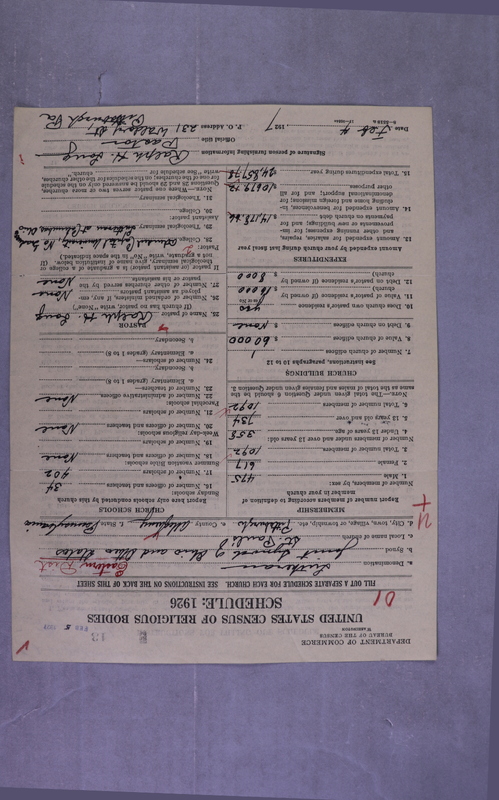 DEPARTMENT OF COMMERCE
BUREAU OF THE CENSUS
WASHINGTON
13
FEB 5
UNITED STATES CENSUS OF RELIGIOUS BODIES
SCHEDULE: 1926
D1
FILL OUT A SEPARATE SCHEDULE FOR EACH CHURCH. SEE INSTRUCTIONS ON THE BACK OF THIS SHEET
a. Denomination Lutheran Eastern Dist
b. Synod Joint Synod of Ohio and Other States
c. Local name of church St. Paul's
d. City, town, village, or township, etc. Pittsburgh e. County Allegheny f. State Pennsylvania
MEMBERSHIP
Report number of members according to definition of member in your church
Number of members, by sex:
1. Male 475
2. Female 617
3. Total number of members 1092
Number of members under and over 13 years old:
4. Under 13 years of age 358
5. 13 years old and over 734
6. Total number of members 1092
NOTE.—The total given under Question 6 should be the same as the total of males and females given under Question 3.
CHURCH BUILDINGS
See instructions, paragraphs 10 to 12
7. Number of church edifices 1
8. Value of church edifices $ 60000
9. Debt on church edifices $ None
10. Does church own pastor's residence yes
11. Value of pastor's residence (if owned by church) $ 10000
12. Debt on pastor's residence (if owned by church) $ 8000
EXPENDITURES
Amount expended by church during last fiscal year
13. Amount expended for salaries, repairs, and other running expenses; for improvements or new buildings; and for payments on church debt
14. Amount expended for benevolences, including home and foreign missions; for denominational support; and for all other purposes $ 10679.12
15. Total expenditures during year
CHURCH SCHOOLS
Report here only schools conducted by this church
Sunday schools:
16. Number of officers and teachers 34
17. Number of scholars 402
Summer vacation Bible schools:
18. Number of officers and teachers None
19. Number of scholars
Week-day religious schools:
20. Number of officers and teachers None
21. Number of scholars
Parochial schools:
22. Number of administrative officers None
23. Number of teachers—
a. Elementary (grades 1 to 8)
b. Secondary
24. Number of scholars—
a. Elementary (grades 1 to 8)
b. Secondary
PASTOR
25. Name of pastor Ralph H. Long
(If church has no pastor, write "None")
26. Number of ordained ministers, if any, employed as assistant pastors None
27. Number of other churches served by the pastor or his assistants None
If pastor or assistant pastor is a graduate of a college or theological seminary, give name of institution below. (If not a graduate, write "No" in the space provided).
Pastor:
28. College
29. Theological seminary
Assistant pastor:
30. College
31. Theological seminary
Signature of person furnishing information Ralph H. Long
Official title Pastor
Date Feb 4, 1927
P. O. Address 231 Pittsburgh Pa